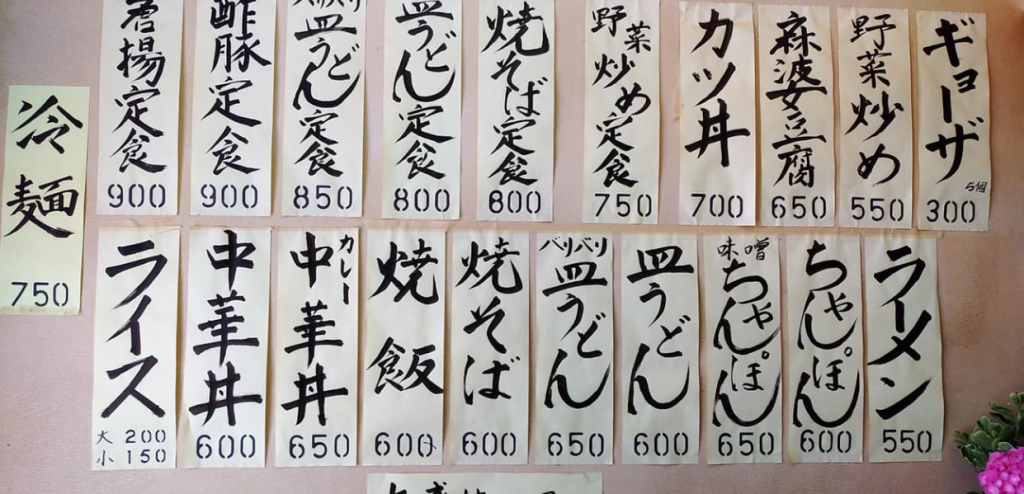 ギョーザ 5個 300
野菜炒め 550
麻波女豆腐 650
カツ丼 700
野菜炒め定食 750
焼そば定食 800
皿うどん定食 800
バリバリ皿うどん定食 850
酢豚定食 900
唐揚定食 900
冷麺 750
ラーメン 550
ちゃんぽん 600
味噌ちゃんぽん 650
皿うどん 600
バリバリ皿うどん 650
焼そば 600
焼飯 600
カレー中華丼 650
中華丼 600
ライス 大200 小150